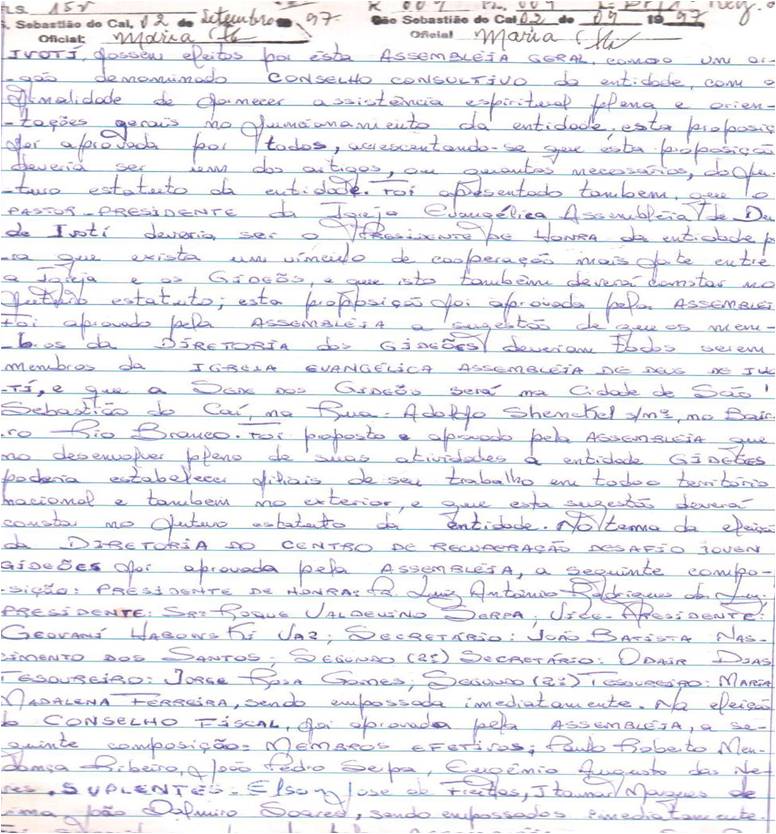 LS. 15v
S. Sebastião do Caí, 02 de Setembro 97.
Oficial: Maria
São Sebastião do Caí 02 de 09 1997
Oficial Maria
IVOTÍ, fossem eleitos por esta ASSEMBLÉIA GERAL, como um or-
-gão denominado CONSELHO CONSULTIVO da entidade, com a
finalidade de fornecer assistência espiritual plena e orien-
-tações gerais no funcionamento da entidade, esta proposiç
foi aprovada por todos, acrescentando-se que esta proposição
deveria ser um dos artigos, ou quantos necessários, do fu-
-turo estatuto da entidade. Foi apresentado tambem, que o
PASTOR-PRESIDENTE da Igreja Evangélica Assembléia de De
de Ivotí deveria ser o PRESIDENTE DE HONRA da entidade p
-ra que exista um vínculo de cooperação mais forte entre
a Igreja e os GIDEÕES, e que isto também deverá constar no
futuro estatuto; esta proposição foi aprovada pela ASSEMBLEI
Foi aprovado pela ASSEMBLEIA a sugestão de que os mem-
-bros da DIRETORIA dos GIDEÕES deveriam todos serem
membros da IGREJA EVANGÉLICA ASSEMBLEIA DE DEUS DE IVO
-TÍ, e que a SEDE DOS GIDEÕES será na Cidade de São
Sebastião do Caí, na Rua: Adolfo Shenckel s/nº, no Bair-
-ro Rio Branco. Foi proposto e aprovado pela ASSEMBLEIA que
no desenvolver pleno de suas atividades a entidade GIDEÕES
poderia estabelecer filiais de seu trabalho em todo o território
nacional e tambem no exterior, e que esta sugestão deverá
constar no futuro estatuto da entidade. No tema da eleição
da DIRETORIA DO CENTRO DE RECUPERAÇÃO DESAFIO JOVEM
GIDEÕES foi aprovada pela ASSEMBLÉIA, a seguinte compo-
-sição: PRESIDENTE DE HONRA: Pr. Luiz Antônio Rodrigues da Luz
PRESIDENTE: Sr: Roque VALDEVINO SERPA, VICE-PRESIDENTE:
GEOVANÍ VAZ; SECRETÁRIO: JOÃO BATISTA NAS-
CIMENTO DOS SANTOS; SEGUNDO (2º) SECRETÁRIO: ODAIR DIAS
TESOUREIRO: JORGE ROSA GOMES; SEGUNDO (2º) TESOUREIRO: MARIA
MADALENA FERREIRA, sendo empossada imediatamente. Na eleição
do CONSELHO FISCAL, foi aprovada pela ASSEMBLEIA, a se-
guinte composição: MEMBROS EFETIVOS; Paulo Roberto Men-
donça Ribeiro, João Pedro Serpa, Eugênio Augusto das Ne-
ves. SUPLENTES: Elson José de Freitas, Itamar Marques de
João Dalmiro Soares, sendo empossados imediatamente.